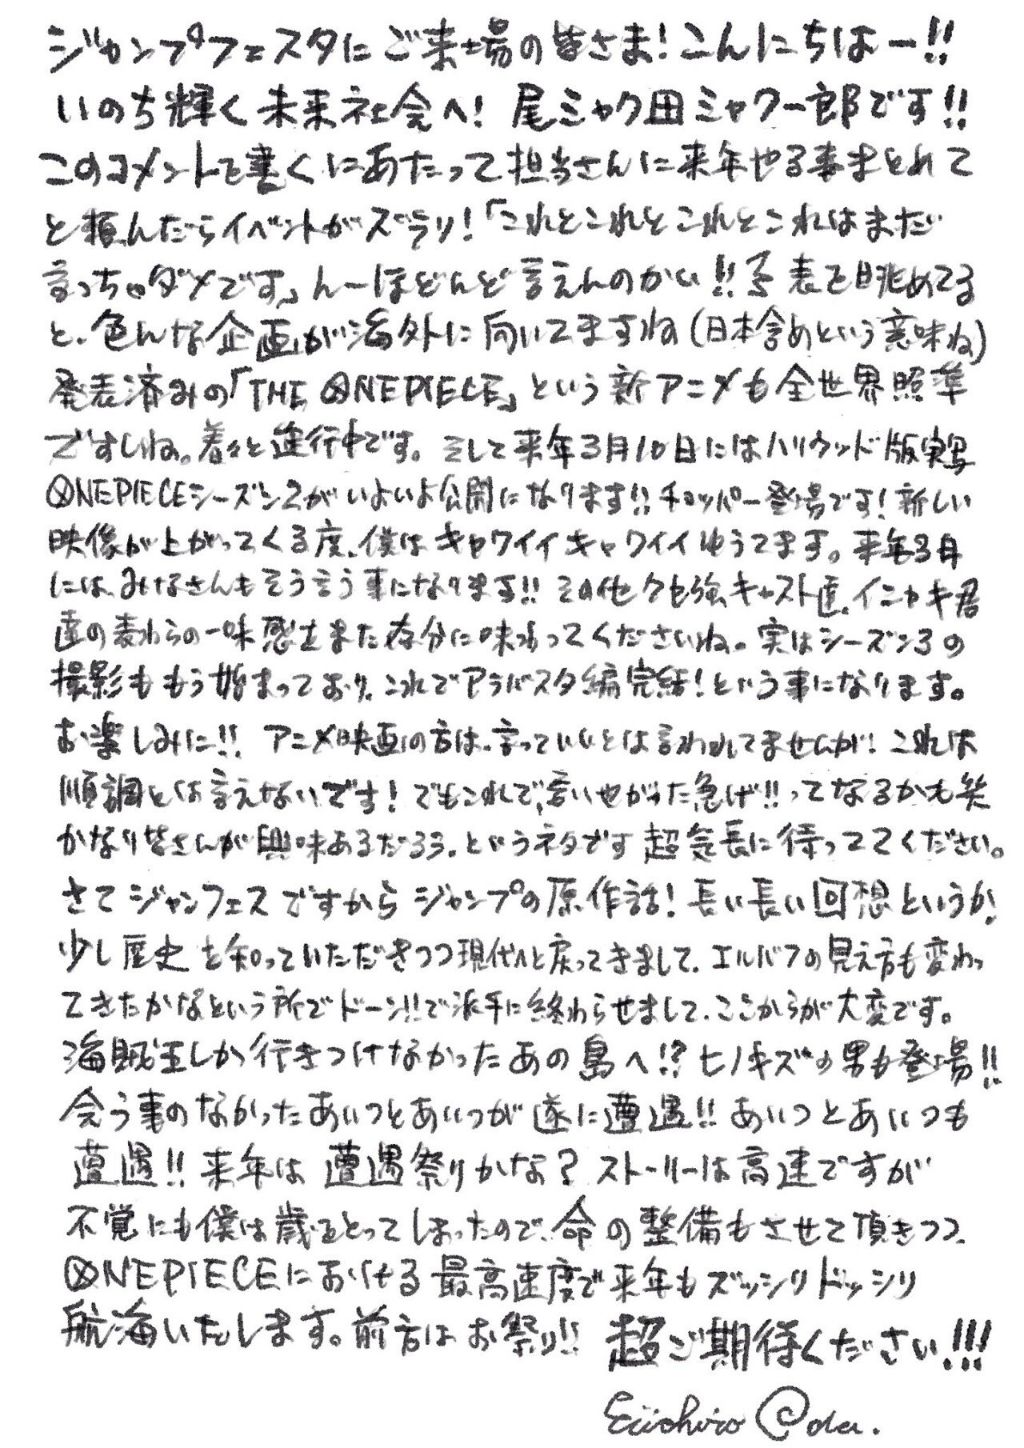 ジャンプフェスタにご来場の皆さま!こんにちはー!!
いのち輝く未来社会へ! 尾ミャク田ミャクー郎です!!
このコメントを書くにあたって担当さんに来年やる事まとめて
と頼んだらイベントがズラリ!「これとこれとこれとこれはまだ
言っちゃダメです」んーほどんど言えんのかい!!予表を眺めてる
と、色んな企画が海外に向いてますね(日本含めという意味ね)
発表済みの「THE ONE PIECE」という新アニメも全世界照準
ですしね。着々と進行中です。そして来年3月10日にはハリウッド版実写
ONE PIECEシーズン2がいよいよ公開になります!!チョッパー登場です!新しい
映像が上がってくる度、僕はキャワイイキャワイイゆうてます。来年3月
には、みなさんもそう言う事になります!! その他クセ強キャスト達、イニャキ君
達の麦わらの一味感もまた存分に味わってくださいね。実はシーズン3の
撮影ももう始まっており、これでアラバスタ編完結!という事になります。
お楽しみに!! アニメ映画の方は、言っていいとは言われてませんが!これは
順調とは言えないです!でもこれで、言いやがった急げ!!ってなるかも笑
かなり皆さんが興味あるだろう、というネタです超気長に待っててください。
さてジャンフェスですからジャンプの原作話!長い長い回想というか、
少し歴史を知っていただきつつ現代へと戻ってきまして、エルバフの見え方も変わっ
てきたかなという所でドーン!!で派手に終わらせまして、ここからが大変です。
海賊王しか行きつけなかったあの島へ!?ヒノキズの男も登場!!
会う事のなかったあいつとあいつが遂に遭遇!!あいつとあいつも
遭遇!!来年は遭遇祭りかな?ストーリーは高速ですが
不覚にも僕は歳をとってしまったので、命の整備もさせて頂きつつ、
ONE PIECEにおける最高速度で来年もズッシリドッシリ
航海いたします。前方はお祭り!! 超ご期待ください!!!
Eiichiro Oda.